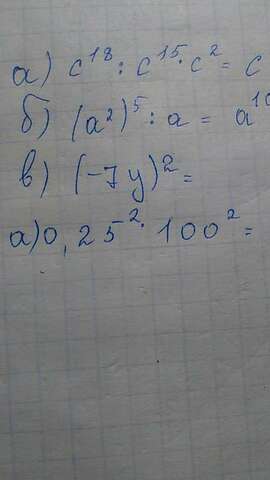 а) c¹⁸ : c¹⁵ · c² = c
б) (a²)⁵ : a = a¹⁰
в) (-7y)² =
а) 0,25² · 100² =